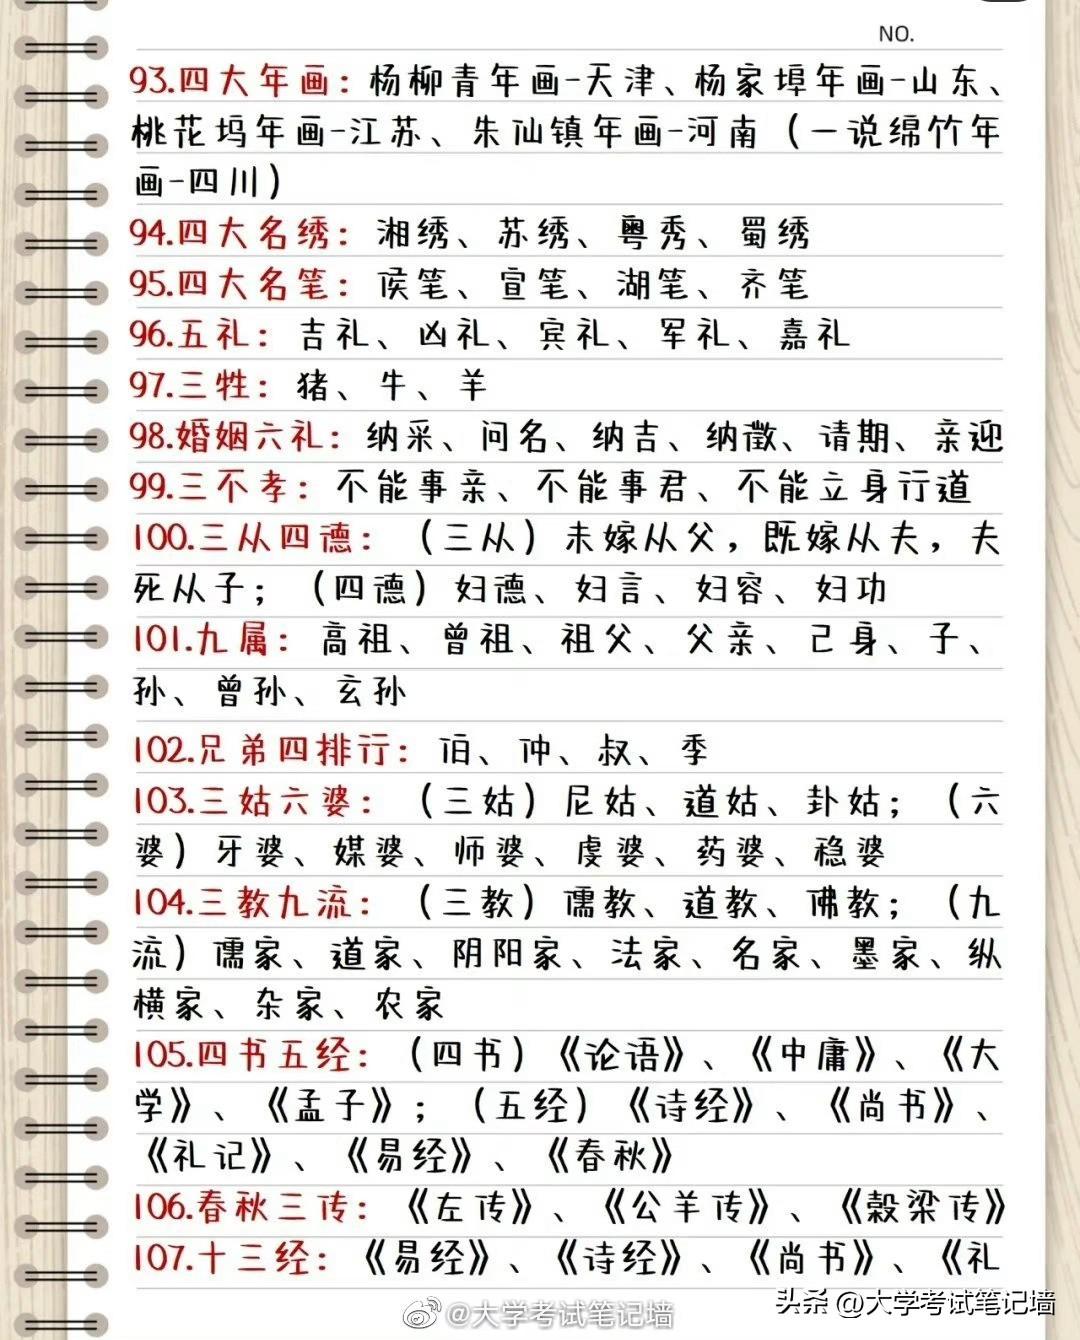 NO.
93.四大年画：杨柳青年画-天津、杨家埠年画-山东、
桃花坞年画-江苏、朱仙镇年画-河南（一说绵竹年
画-四川）
94.四大名绣：湘绣、苏绣、粤秀、蜀绣
95.四大名笔：侯笔、宣笔、湖笔、齐笔
96.五礼：吉礼、凶礼、宾礼、军礼、嘉礼
97.三牲：猪、牛、羊
98.婚姻六礼：纳采、问名、纳吉、纳徵、请期、亲迎
99.三不孝：不能事亲、不能事君、不能立身行道
100.三从四德：（三从）未嫁从父，既嫁从夫，夫
死从子；（四德）妇德、妇言、妇容、妇功
101.九属：高祖、曾祖、祖父、父亲、己身、子、
孙、曾孙、玄孙
102.兄弟四排行：伯、仲、叔、季
103.三姑六婆：（三姑）尼姑、道姑、卦姑；（六
婆）牙婆、媒婆、师婆、虔婆、药婆、稳婆
104.三教九流：（三教）儒教、道教、佛教；（九
流）儒家、道家、阴阳家、法家、名家、墨家、纵
横家、杂家、农家
105.四书五经：（四书）《论语》、《中庸》、《大
学》、《孟子》；（五经）《诗经》、《尚书》、
《礼记》、《易经》、《春秋》
106.春秋三传：《左传》、《公羊传》、《榖梁传》
107.十三经：《易经》、《诗经》、《尚书》、《礼
@大学考试笔记墙
头条 @大学考试笔记墙